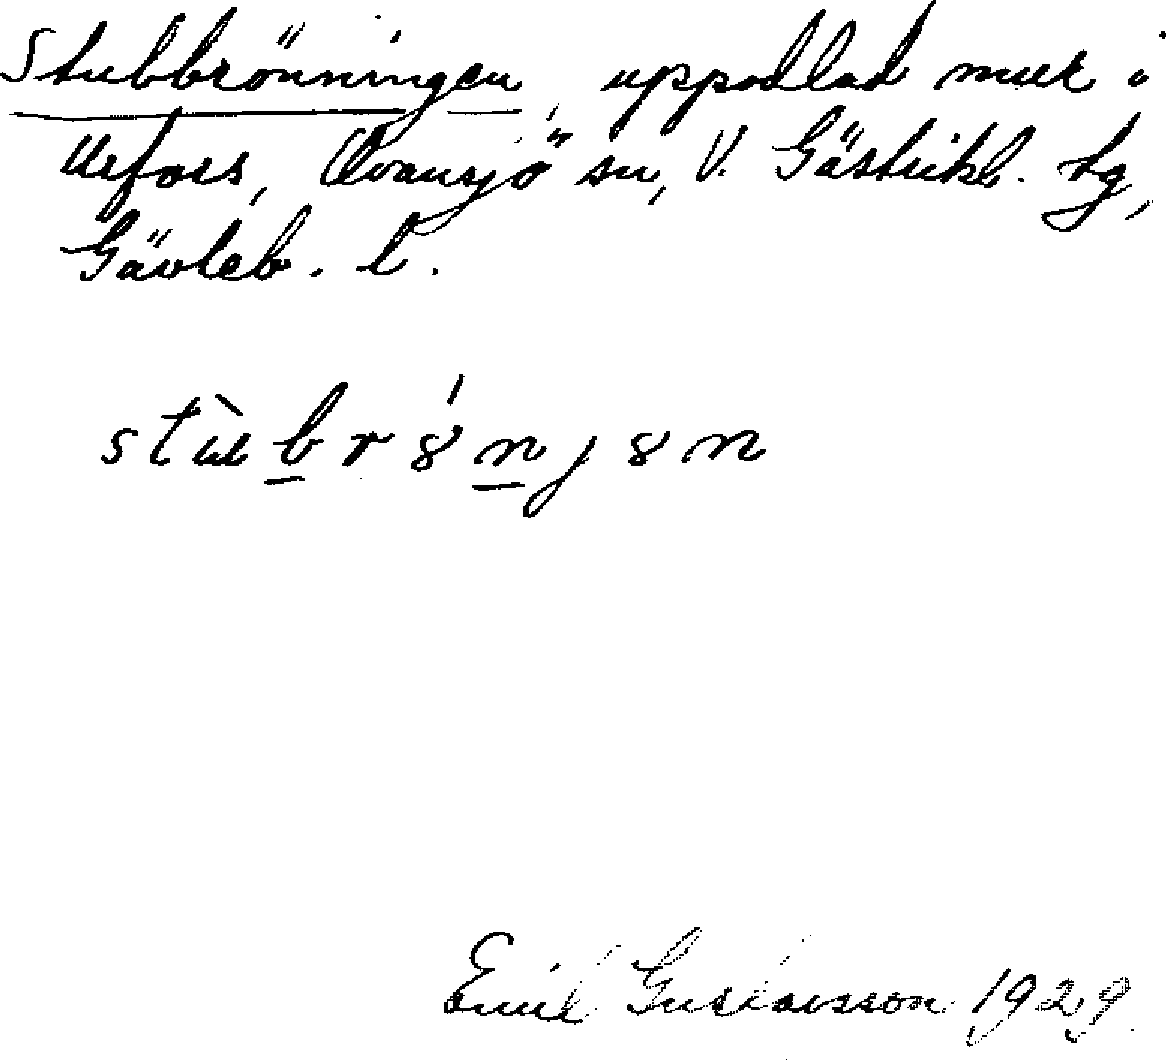 Stubbrönningen, uppodlad mur i
Urfors, Ovansjö sn, V. Gästrikl. tg,
Gävleb. l.
Emil Gustavsson 1929.